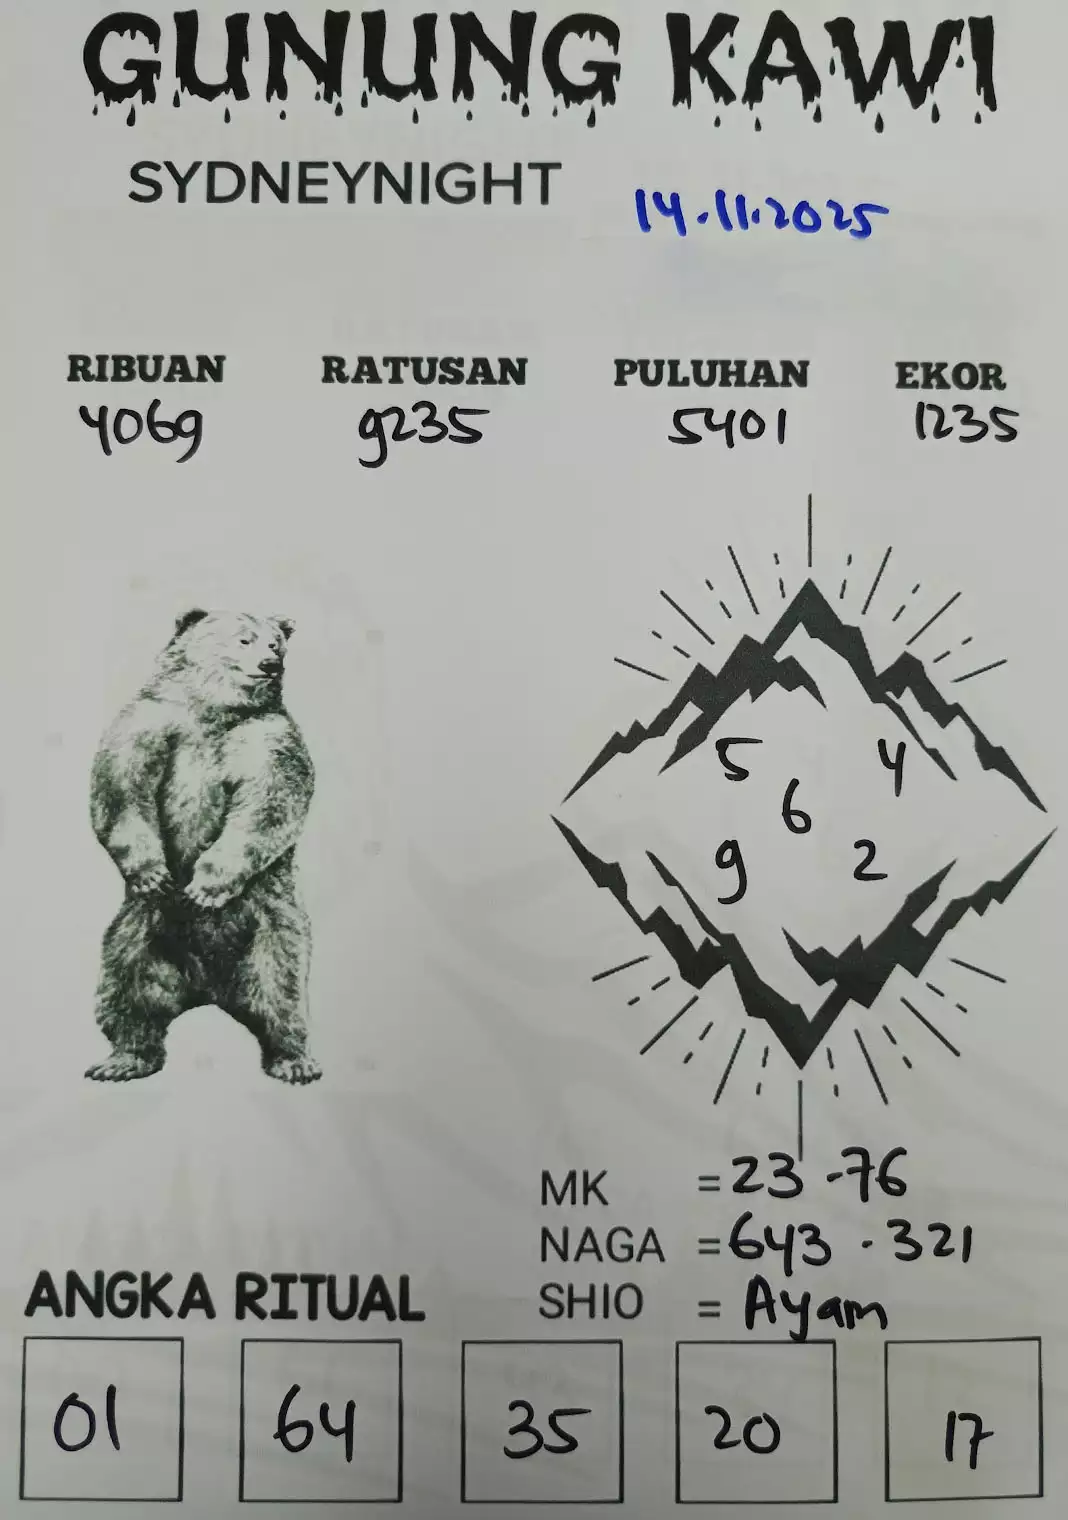 GUNUNG KAWI
SYDNEYNIGHT
14.11.2025
RIBUAN RATUSAN PULUHAN EKOR
4069 9235 5401 1235
5 4
6
9 2
MK = 23 - 76
NAGA = 643 . 321
SHIO = Ayam
ANGKA RITUAL
01 64 35 20 17